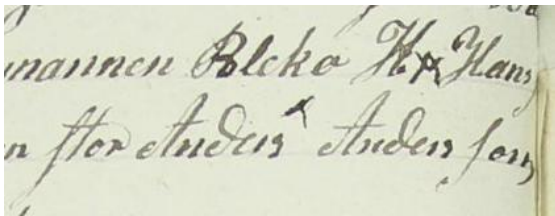 mannen Bleko H Hans
n stor Anders Anders son